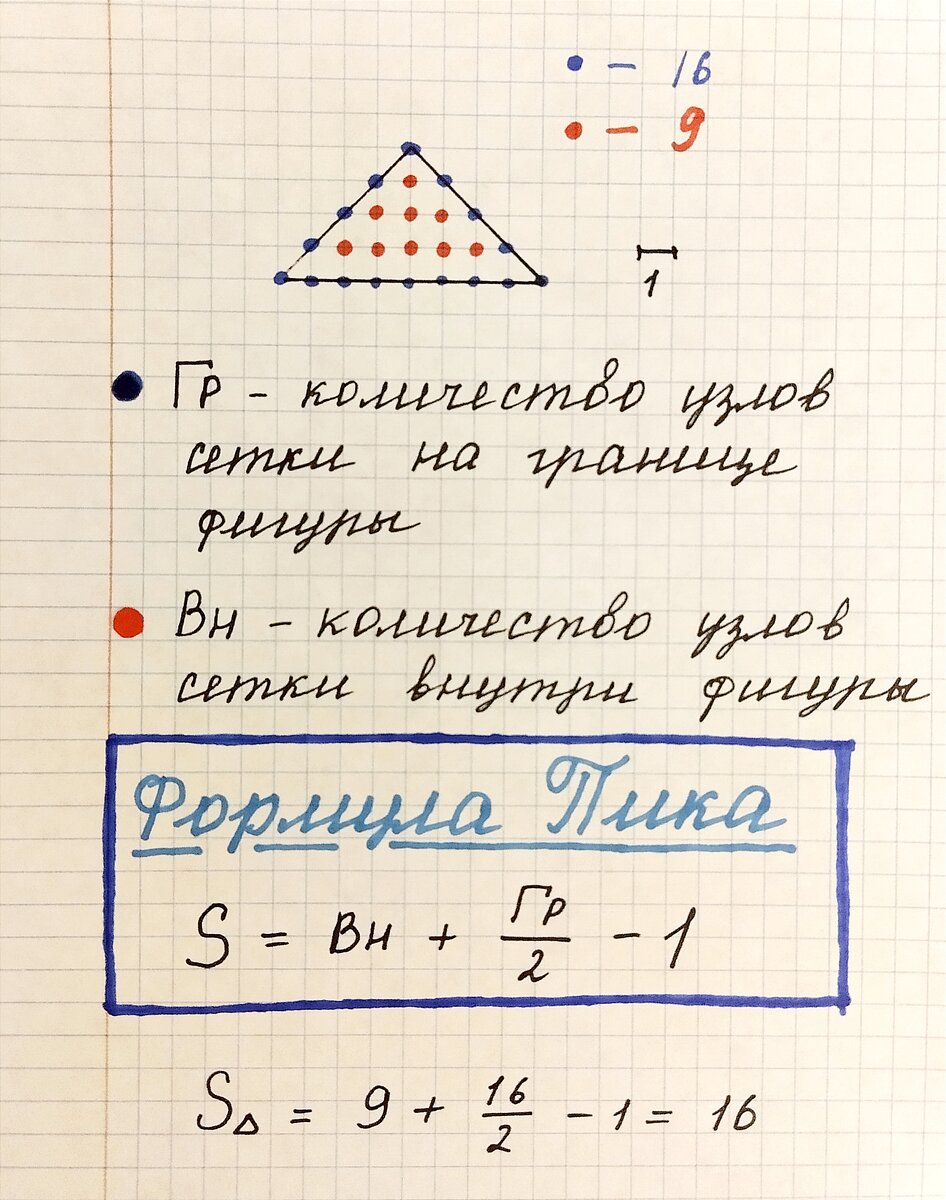 • – 16
• – 9
1
• Гр – количество узлов
сетки на границе
фигуры
• Вн – количество узлов
сетки внутри фигуры
Формула Пика
S = Вн + Гр/2 – 1
S△ = 9 + 16/2 – 1 = 16